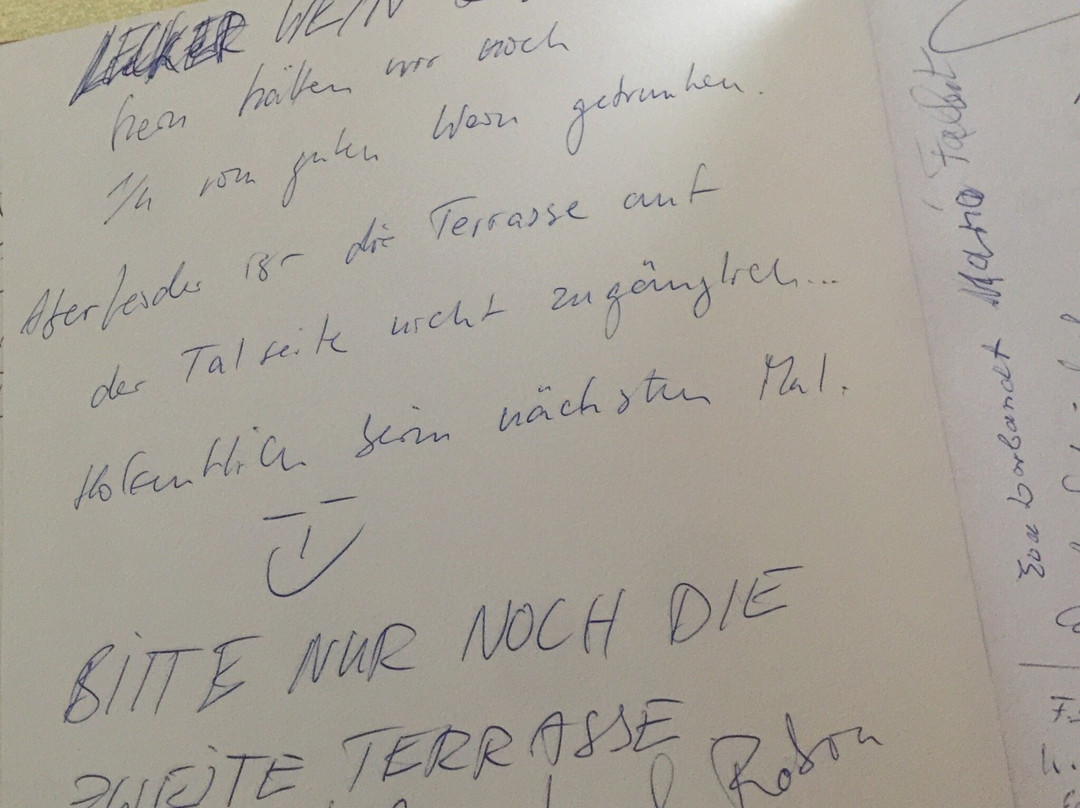 LECKER WEIN
hätten wir noch
1/4 vom guten Wein getrunken.
ist die Terrasse auf
der Talseite nicht zugänglich...
Hoffentlich beim nächsten Mal.
BITTE NUR NOCH DIE
ZWEITE TERRASSE
Robon
Mario Talbot
Eva Lorbandt